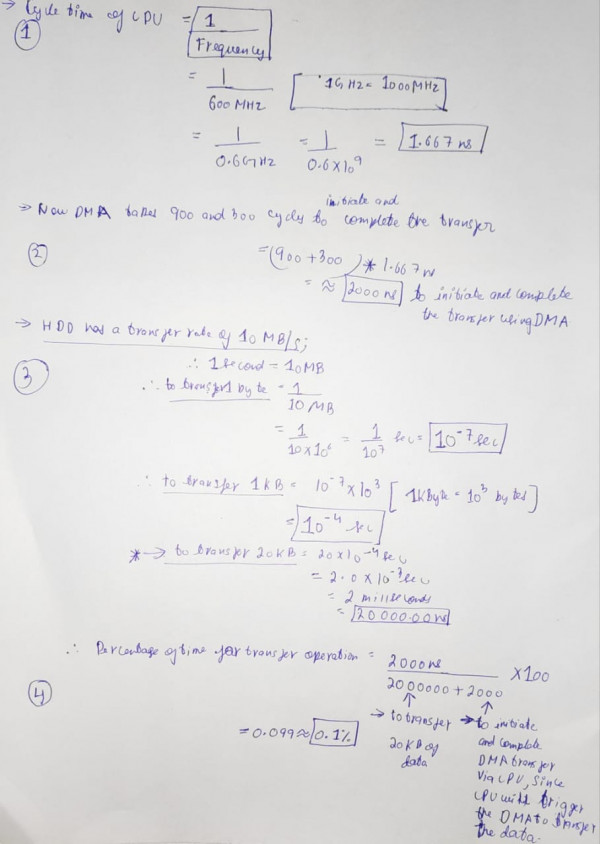 → Cycle time of CPU = 1 / Frequency
①
= 1 / 600 MHz [1GHz = 1000 MHz]
= 1 / 0.6GHz = 1 / 0.6 × 10⁹ = 1.667 ns
→ Now DMA takes 900 and 300 cycles to initiate and complete the transfer
②
= (900 + 300) * 1.667 ns
= ≈ 2000 ns to initiate and complete
the transfer using DMA
→ HDD has a transfer rate of 10 MB/s;
∴ 1 second = 10 MB
③
∴ to transfer 1 byte = 1 / 10 MB
= 1 / 10×10⁶ = 1 / 10⁷ sec = 10⁻⁷ sec
∴ to transfer 1 kB = 10⁻⁷ × 10³ [1 kByte = 10³ bytes]
= 10⁻⁴ sec
* → to transfer 20kB = 20 × 10⁻⁴ sec
= 2.0 × 10⁻³ sec
= 2 milliseconds
= 20 000.00 ns
∴ Percentage of time for transfer operation = 2000 ns / 2000000 + 2000 × 100
④
→ to transfer
20 kB of
data
→ to initiate
and complete
DMA transfer
via CPU, since
CPU will trigger
the DMA to transfer
the data.
= 0.099 ≈ 0.1%